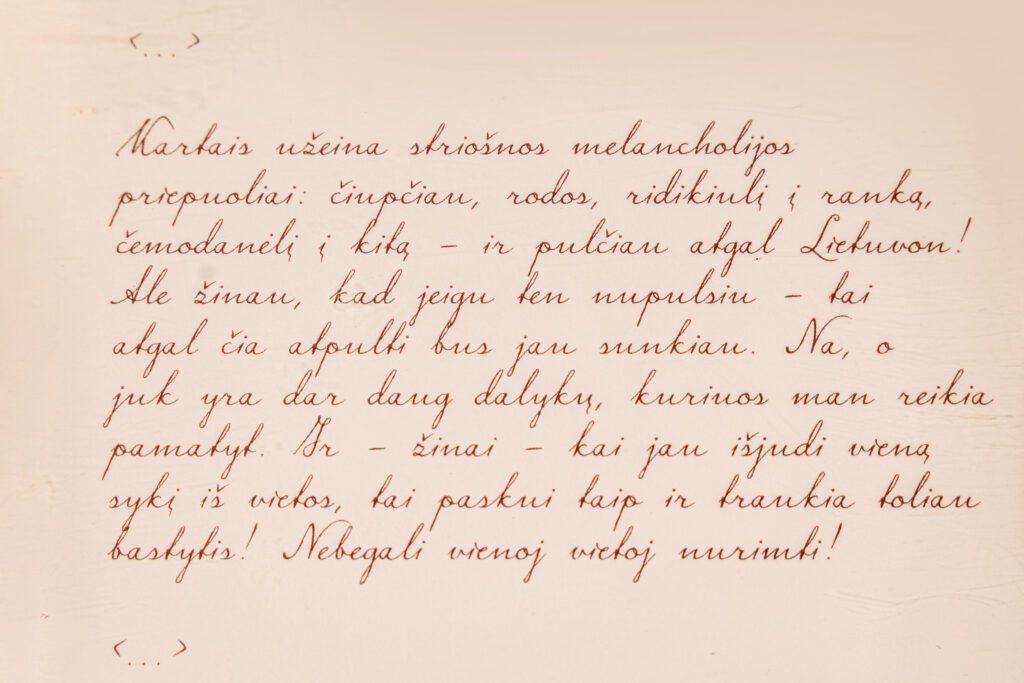 <...>
Kartais užeina striošnos melancholijos
priepuoliai: čiupčiau, rodos, ridikiulį į ranką,
čemodanėlį į kitą – ir pulčiau atgal Lietuvon!
Ale žinau, kad jeigu ten nupulsiu – tai
atgal čia atpulti bus jau sunkiau. Na, o
juk yra dar daug dalykų, kuriuos man reikia
pamatyt. Ir – žinai – kai jau išjudi vieną
sykį iš vietos, tai paskui taip ir traukia toliau
bastytis! Nebegali vienoj vietoj nurimti!
<...>